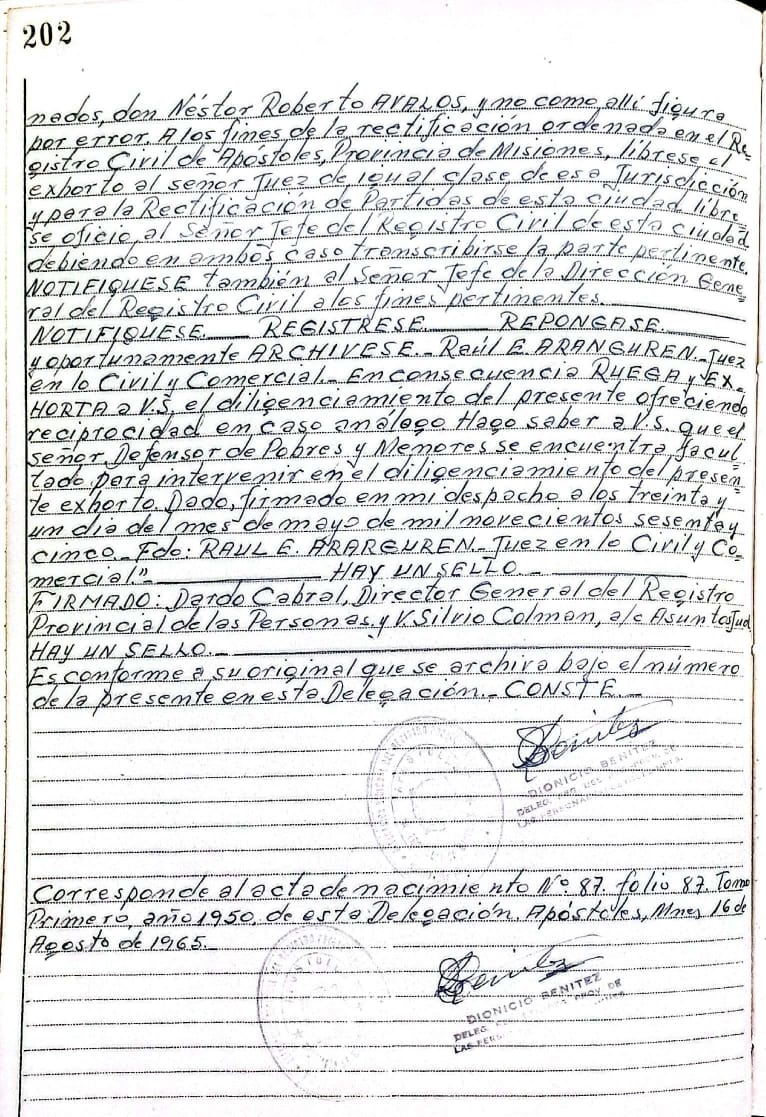 202
nados, don Néstor Roberto AVALOS, y no como allí figura
por error. A los fines de la rectificación ordenada en el Re-
gistro Civil de Apóstoles, Provincia de Misiones, líbrese el
exhorto al señor Juez de igual clase de esa Jurisdicción
y para la Rectificación de Partidas de esta ciudad líbre-
se oficio al Señor Jefe del Registro Civil de esta ciudad,
debiendo en ambos caso transcribirse la parte pertinente.
NOTIFIQUESE también al Señor Jefe de la Dirección Gene-
ral del Registro Civil a los fines pertinentes.
NOTIFIQUESE. REGISTRESE. REPONGASE.
y oportunamente ARCHIVESE.- Raúl E. ARANGUREN.- Juez
en lo Civil y Comercial.- En consecuencia RUEGA y EX-
HORTA a V.S. el diligenciamiento del presente ofreciendo
reciprocidad en caso análogo Hago saber a V.S. que el
señor Defensor de Pobres y Menores se encuentra facul
tado para intervenir en el diligenciamiento del presen-
te exhorto. Dado, firmado en mi despacho a los treinta y
un dia del mes de mayo de mil novecientos sesenta y
cinco.- Fdo: RAUL E. ARARGUREN.- Juez en lo Civil y Co-
mercial". HAY UN SELLO.-
FIRMADO: Dardo Cabral, Director General del Registro
Provincial de las Personas, y V. Silvio Colman, a/c Asuntos Jud
HAY UN SELLO.-
Es conforme a su original que se archiva bajo el número
de la presente en esta Delegación.- CONSTE.-
Benitez
DIONICIO BENITEZ
DELEG. REG. DE
LAS PERSONAS
Corresponde al acta de nacimiento Nº 87. folio 87. Tomo
Primero, año 1950, de esta Delegación. Apóstoles, Mnes 16 de
Agosto de 1965.
Benitez
DIONICIO BENITEZ
DELEG. PROV. DE
LAS